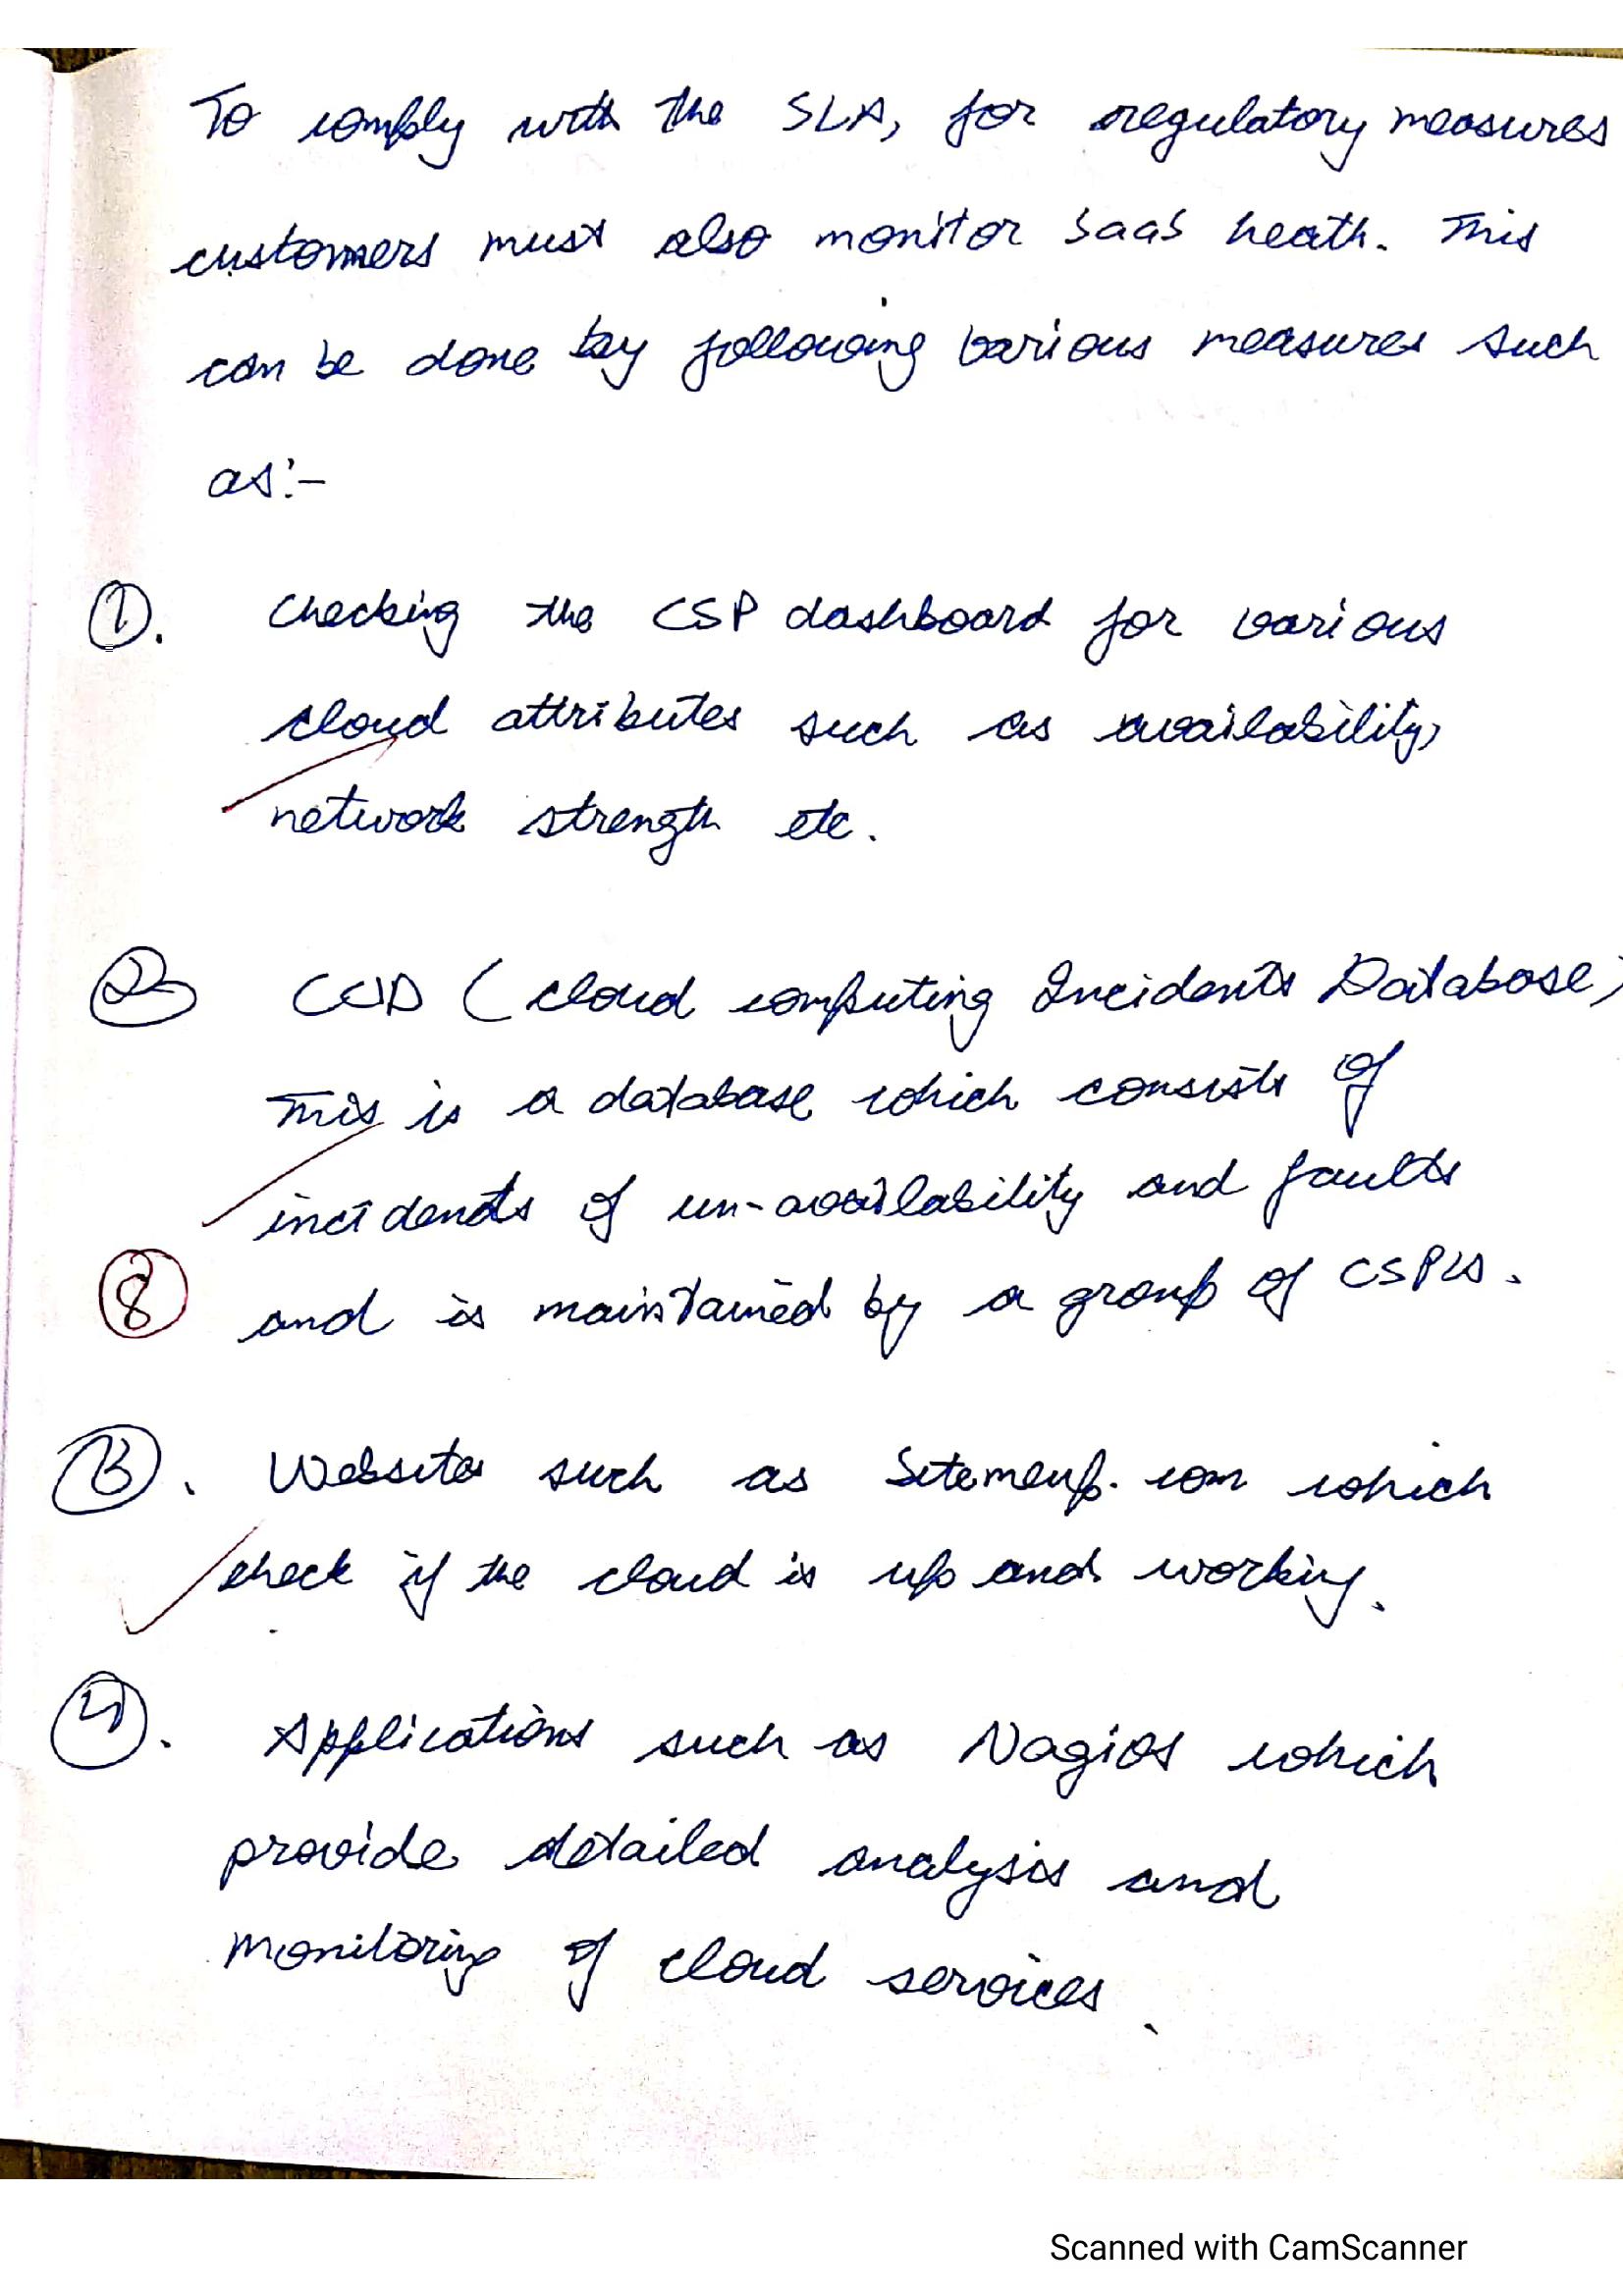 To comply with the SLA, for regulatory measures
customers must also monitor SaaS heath. This
can be done by following various measures such
as:-
①. Checking the CSP dashboard for various
cloud attributes such as availability,
network strength etc.
② CCID (cloud computing Incidents Database)
This is a database which consists of
incidents of un-availability and faults
⑧ and is maintained by a group of CSP's.
③. Websites such as Sitemeup.com which
check if the cloud is up and working.
④. Applications such as Nagios which
provide detailed analysis and
monitoring of cloud services.
Scanned with CamScanner